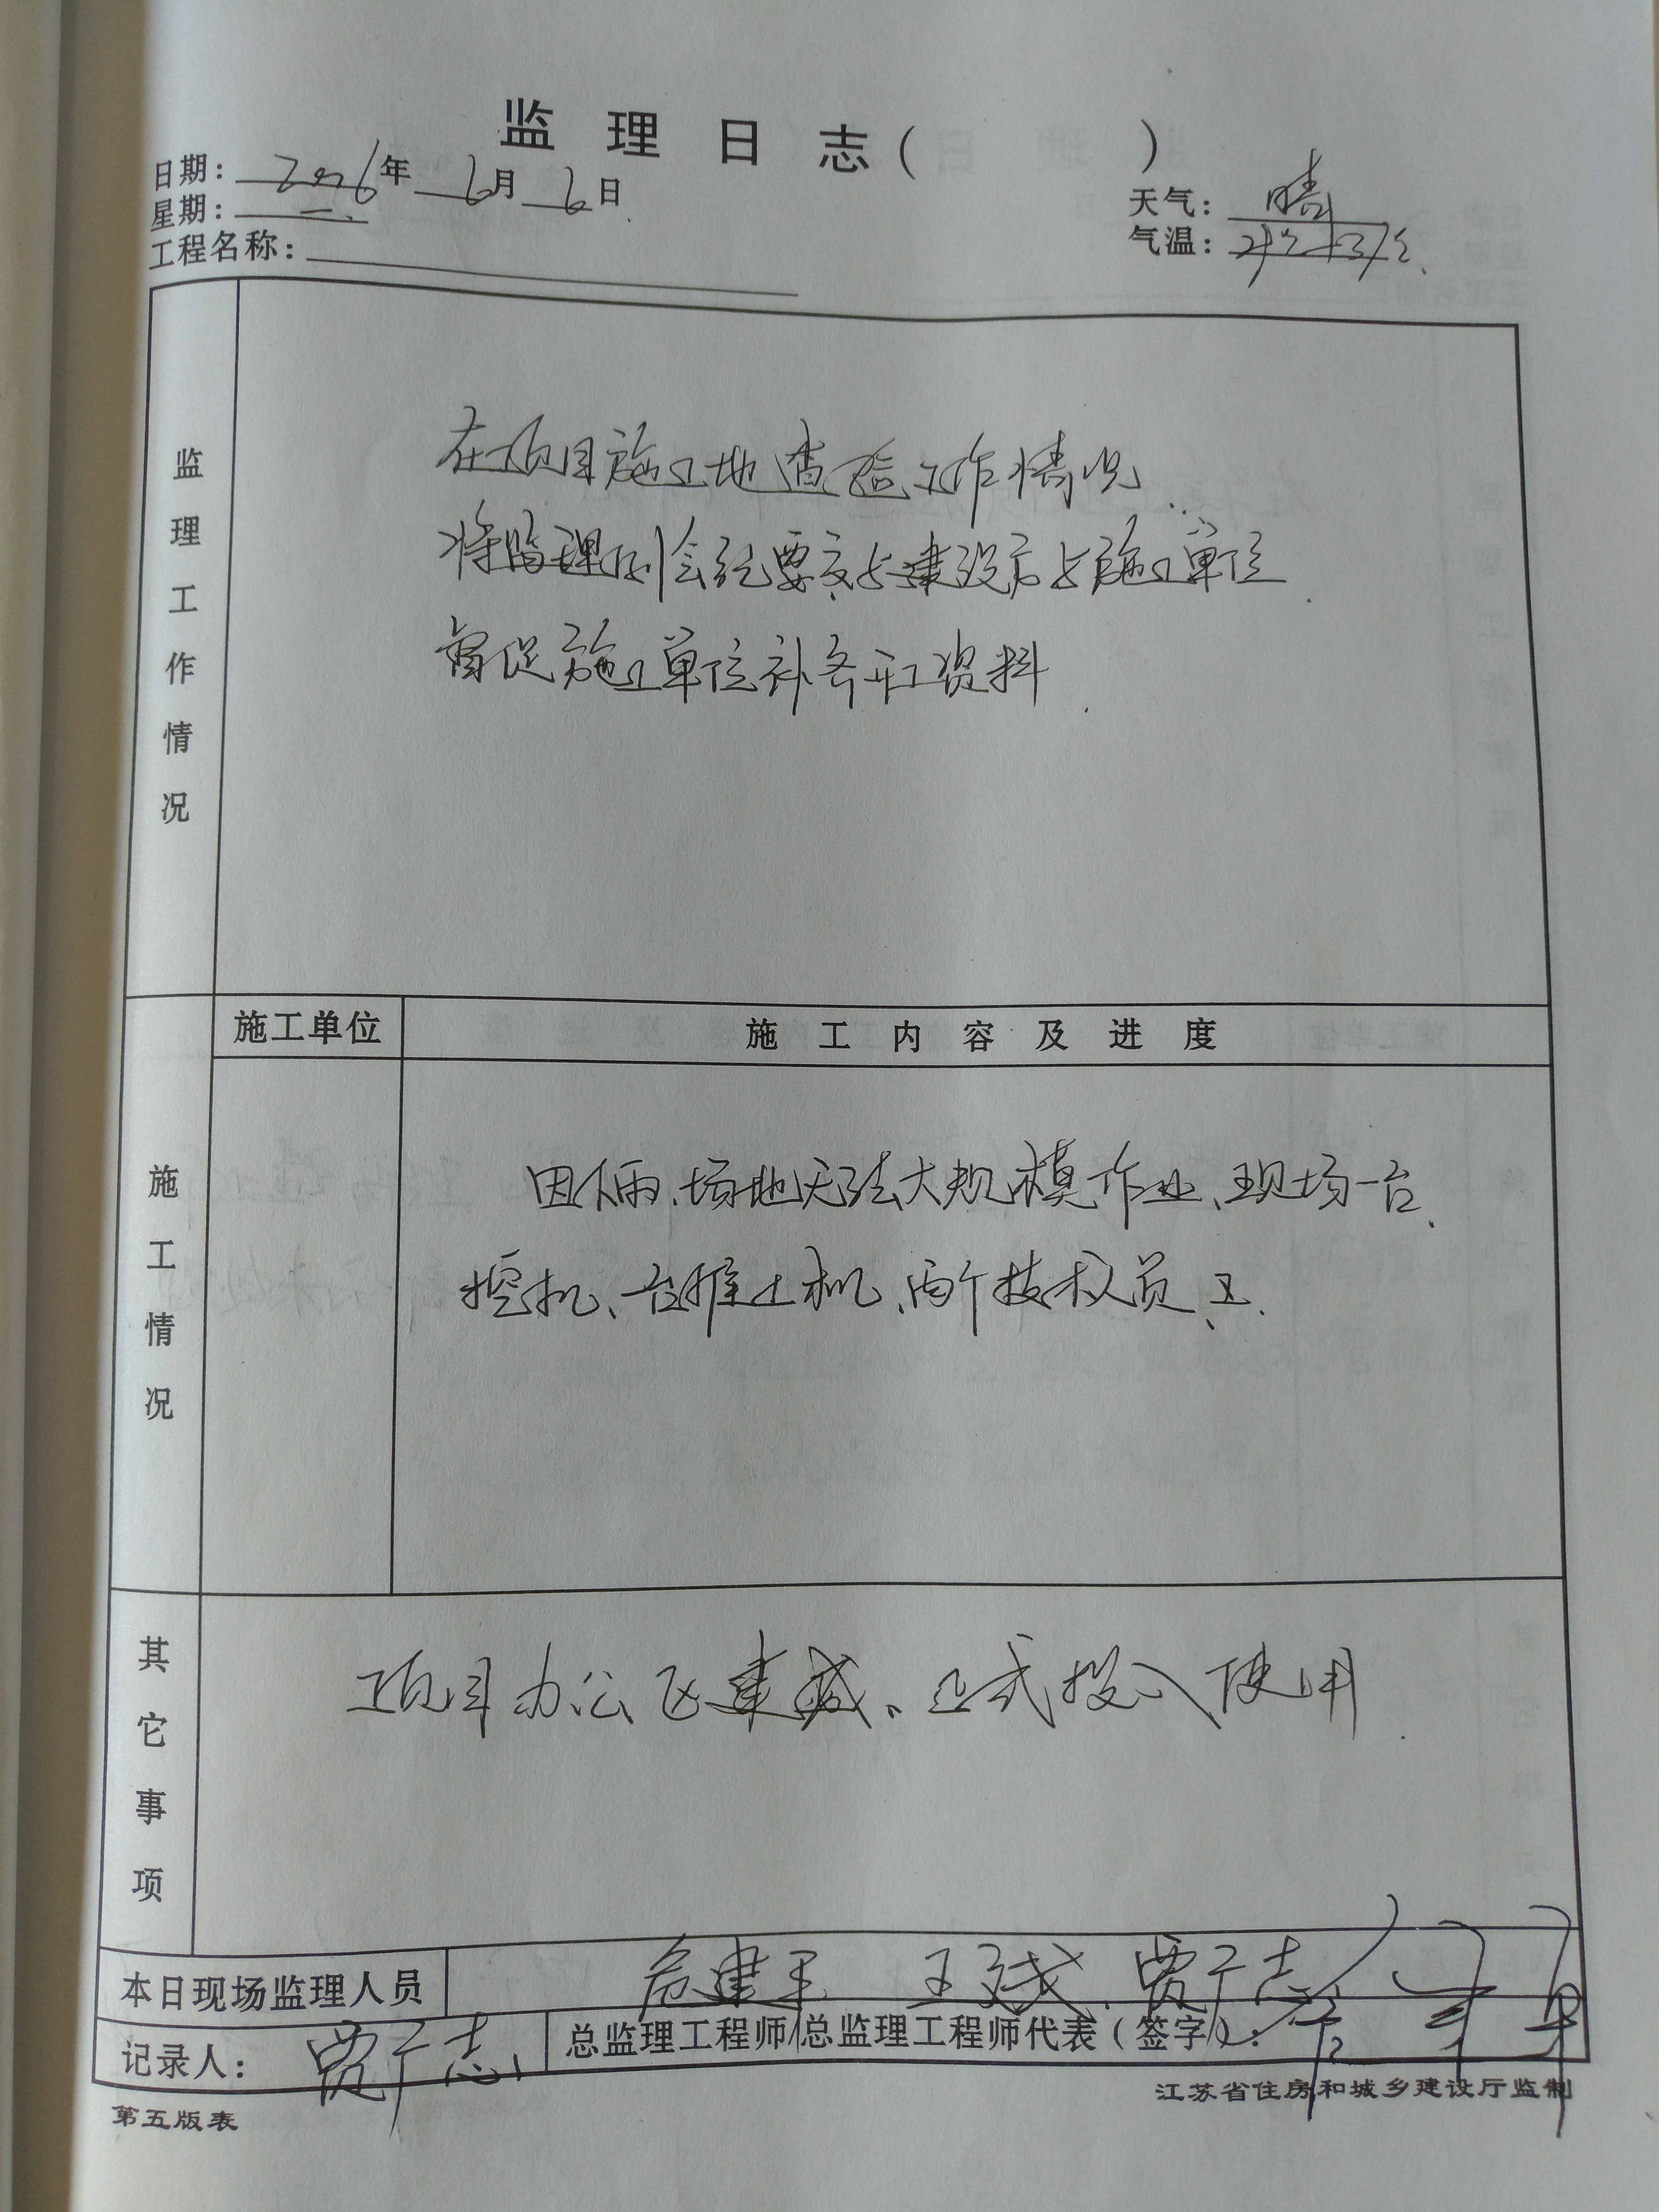 监理日志( )
日期: 2016年 6月 6日
星期: 一.
天气: 晴
工程名称:
气温:
监理工作情况
在项目施工地查验工作情况.
将监理例会纪要交与建设方与施工单位.
督促施工单位补齐开工资料.
施工单位
施工内容及进度
施工情况
因下雨、场地无法大规模作业、现场一台、
挖机、一台推土机、两个技术人员、
其它事项
项目办公区建成、正式投入使用.
本日现场监理人员
贾广志
记录人: 贾广志
总监理工程师/总监理工程师代表(签字):
江苏省住房和城乡建设厅监制
第五版表